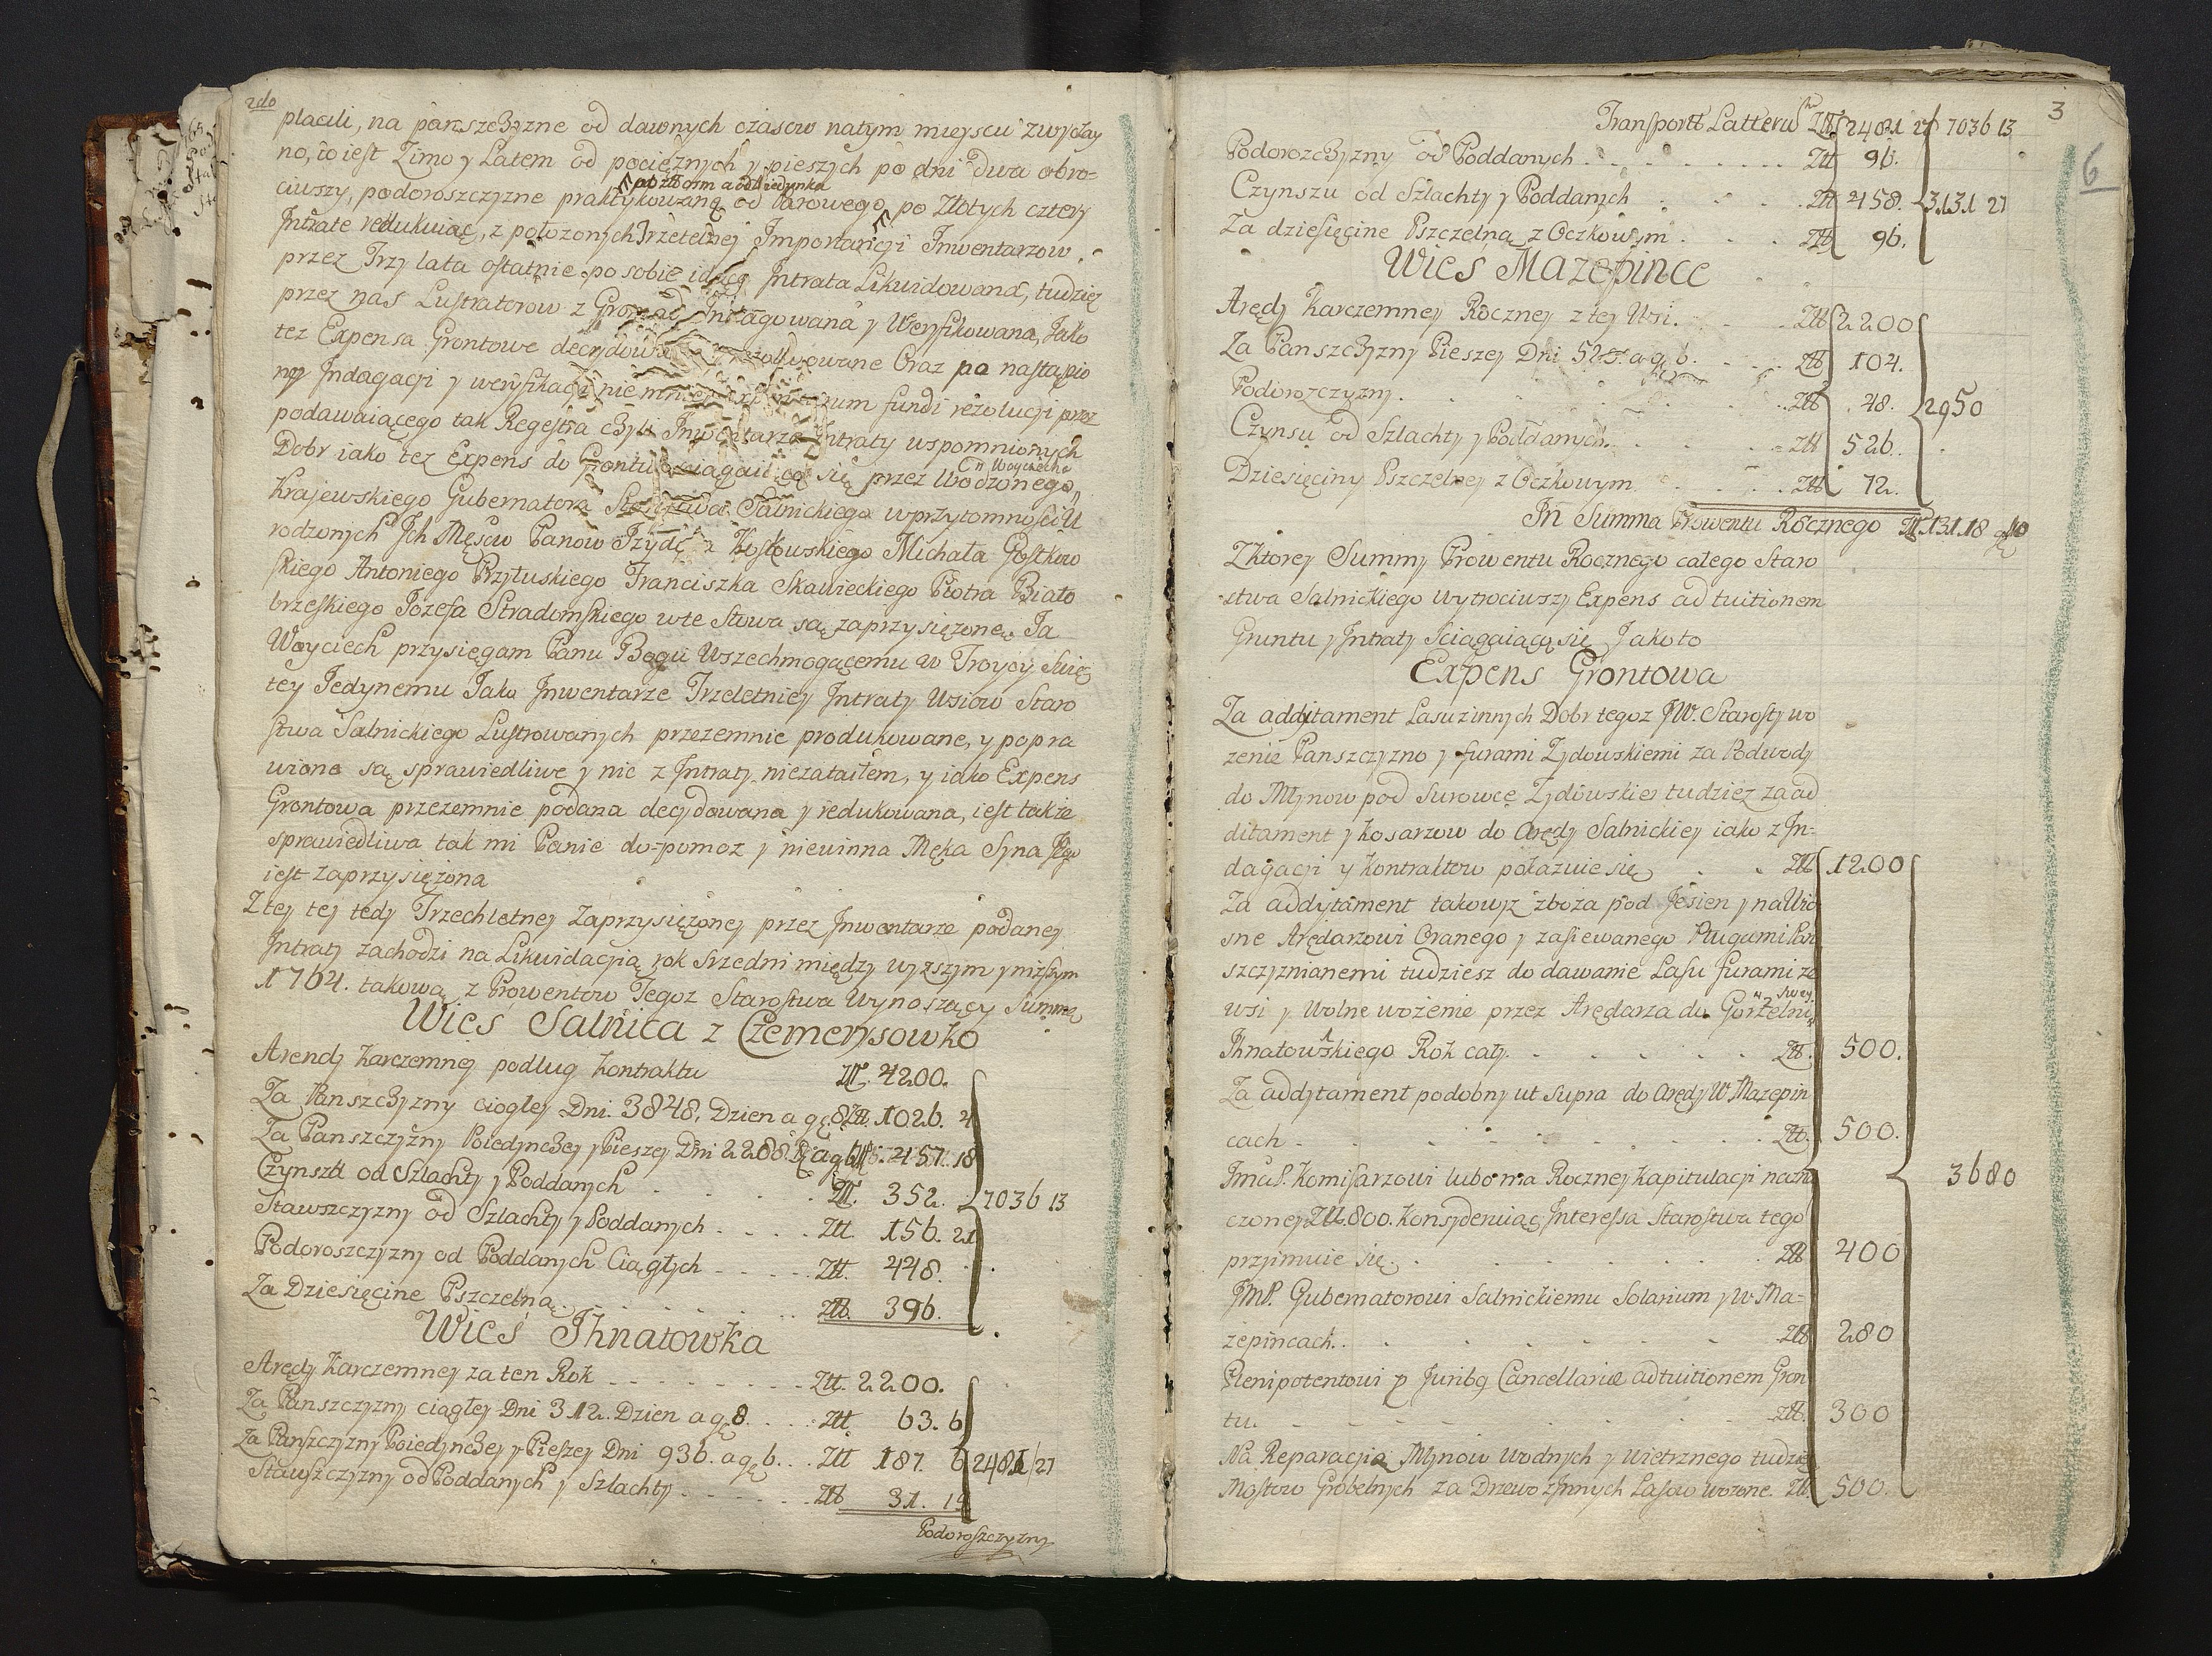 2do
placili, na panszczyzne od dawnych czasow natym mieyscu zwyczay
no, to iest Zimo y Latem od pociężnych y pieszych po dni dwa obro-
ciwszy, podoroszczyzne praktykowaną od Parowego po Złotych cztery
Intrate redukuiąc, z położonych Trzeletniey Importancyi Inwentarzow
przez Trzy lata ostatnie po sobie idące Intrata Likwidowana, tudziez
przez nas Lustratorow z Gromad Indagowana y Weryfikowana, Jako
tez Expensa Grontowe decydowane Oraz po nastąpio
ney Indagacyi y weryfikacyi niemniey fundi rezolucyi przez
podawaiącego tak Regestra czyli Inwentarza Intraty wspomnionych
Dobr iako tez Expens do Grontu ściągaiącą się przez Urodzonego
Woyciecha
Krajewskiego Gubernatora Starostwa Salnickiego w przytomności U
rodzonych Ich Męściow Panow Kosłowskiego Michała Gostkow
skiego Antoniego Przyłuskiego Franciszka Skawieckiego Piotra Biało
brzeskiego Jozefa Stradomskiego w te słowa są zaprzysiężone. Ja
Woyciech przysięgam Panu Bogu Wszechmogącemu w Troycy Swię
tey Jedynemu Jako Inwentarze Trzeletniey Intraty Wsiow Staro
stwa Salnickiego Lustrowanych przezemnie produkowane, y popra
wione są sprawiedliwe y nic z Intraty niezataiłem, y iako Expens
Grontowa przezemnie podana decydowana y redukowana, iest także
sprawiedliwa tak mi Panie do-pomoz y niewinna Męka Syna Jego
iest zaprzysiężona
Z tey tey tedy Trzechletney Zaprzysiężoney przez Inwentarze podaney
Intraty zachodzi na Likwidacyią rok srzedni między wyzszym y nizszym
1764. takową z Prowentow Tegoz Starostwa Wynoszący Summę
Wieś Salnica z Czemerysowko
Arendy Karczemney podług Kontraktu Ztt. 4200.
Za Panszczyzny ciogłey Dni. 3848. Dzien a gę. 8. Ztt. 1026. 4
Za Panszczyzny Poiedynczey y Pieszey Dni 2288. a gę 6 Ztt. 457. 18
Czynszu od Szlachty y Poddanych Ztt. 352. 7036 13
Stawszczyzny od Szlachty y Poddanych Ztt. 156. 21
Podoroszczyzny od Poddanych Ciągłych Ztt. 448.
Za Dziesięcine Pszczelną Ztt. 396.
Wieś Ihnatowka
Arędy Karczemney za ten Rok Ztt. 2200.
Za Panszczyzny ciągłey Dni 312. Dzien a gę 8. Ztt 63. 6
Za Panszczyzny Poiedynczey y Pieszey Dni 936. a gę 6. Ztt 187. 6 2481 27
Stawszczyzny od Poddanych y Szlachty Ztt 31. 15
Podoroszczyzny
3
6
Transportt Latteru Ztt 2481 27 7036 13
Podorozczyzny od Poddanych Ztt 96.
Czynszu od Szlachty y Poddanych Ztt 458. 3131 27
Za dziesięcine Pszczelną z Oczkowym Ztt 96.
Wieś Mazepince
Arędy Karczemney Roczney z tey Wsi. Ztt 2200
Za Panszczyzny Pieszey Dni 520. a gę 6. Ztt 104.
Podorozczyzny. Ztt 48. 2950
Czynsu od Szlachty y Poddanych. Ztt 526.
Dziesięciny Pszczelney z Oczkowym Ztt 72.
In Summa Prowentu Rocznego Ztt. 13118 gę 10
Z ktorey Summy Prowentu Rocznego całego Staro
stwa Salnickiego wytrociwszy Expens ad tuitionem
Gruntu y Intraty Sciągaiącą się Jakoto
Expens Grontowa
Za addytament Lasu z innych Dobr tegoz JW. Starosty wo
zenie Panszczyzno y furami Zydowskiemi za Podwody
do Młynow pod Surowcę Zydowskie tudziez za ad
ditament y kosarzow do Arędy Salnickiey iako z In-
dagacyi y kontraktow pokazuie się Ztt 1200
Za addytament takowyz zboża pod Jesien y na Wio
sne Arędarzowi Oranego y zasiewanego Pługami Pan
szczyznianemi tudziesz do dawanie Lasu furami ze
wsi y Wolne wożenie przez Arędarza do Gorzelni
swey
Ihnatowskiego Rok cały. Ztt. 500.
Za addytament podobny ut supra do Arędy W Mazepin
cach Ztt. 500.
Jmci P. Komisarzowi lubo ma Roczney Kapitulacyi nazna
czoney Ztt. 800. Konsyderuiąc Interessa Starostwa tego 3680
przyimuie się. Ztt 400
JmP. Gubernatorowi Salnickiemu Solarium y W Ma-
zepincach. Ztt 280
Plenipotentowi p Juribq Cancellariæ ad tuitionem Gron
tu. Ztt. 300
Na Reparacyią Młynow Wodnych y Wietrznego tudziez
Mostow Grobelnych za Drzewo z Innych Lasow wozone. Ztt 500.